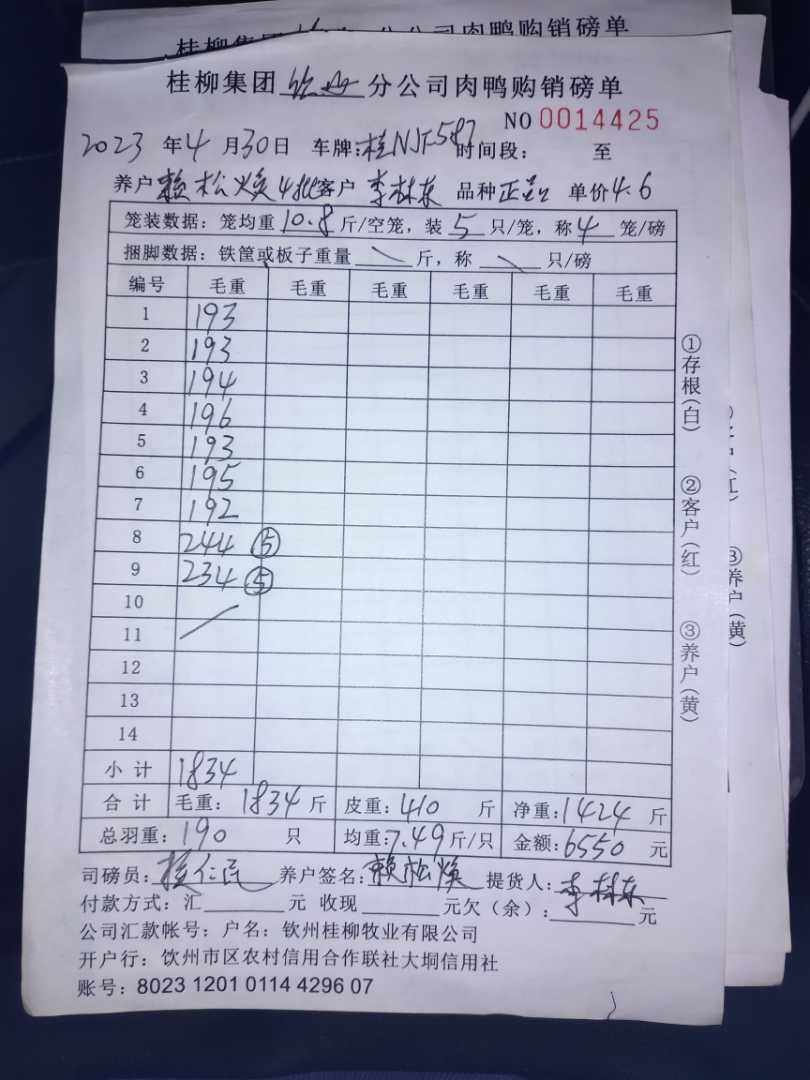 桂柳集团钦州分公司肉鸭购销磅单
NO 0014425
2023年4月30日 车牌:桂NJF587 时间段: 至
养户赖松焕4批客户李林东 品种正品 单价4.6
笼装数据:笼均重10.8斤/空笼,装5只/笼,称4笼/磅
捆脚数据:铁筐或板子重量 \ 斤,称 \ 只/磅
编号 毛重 毛重 毛重 毛重 毛重 毛重
1 193
2 193
3 194
4 196
5 193
6 195
7 192
8 244 ⑤
9 234 ⑤
10
11
12
13
14
小计 1834
合计 毛重:1834斤 皮重:410斤 净重:1424斤
总羽重:190只 均重:7.49斤/只 金额:6550元
司磅员: 养户签名:赖松焕 提货人:李林东
付款方式:汇 元 收现 元欠(余): 元
公司汇款帐号:户名:钦州桂柳牧业有限公司
开户行:饮州市区农村信用合作联社大垌信用社
账号:8023 1201 0114 4296 07
①存根(白)
②客户(红)
③养户(黄)